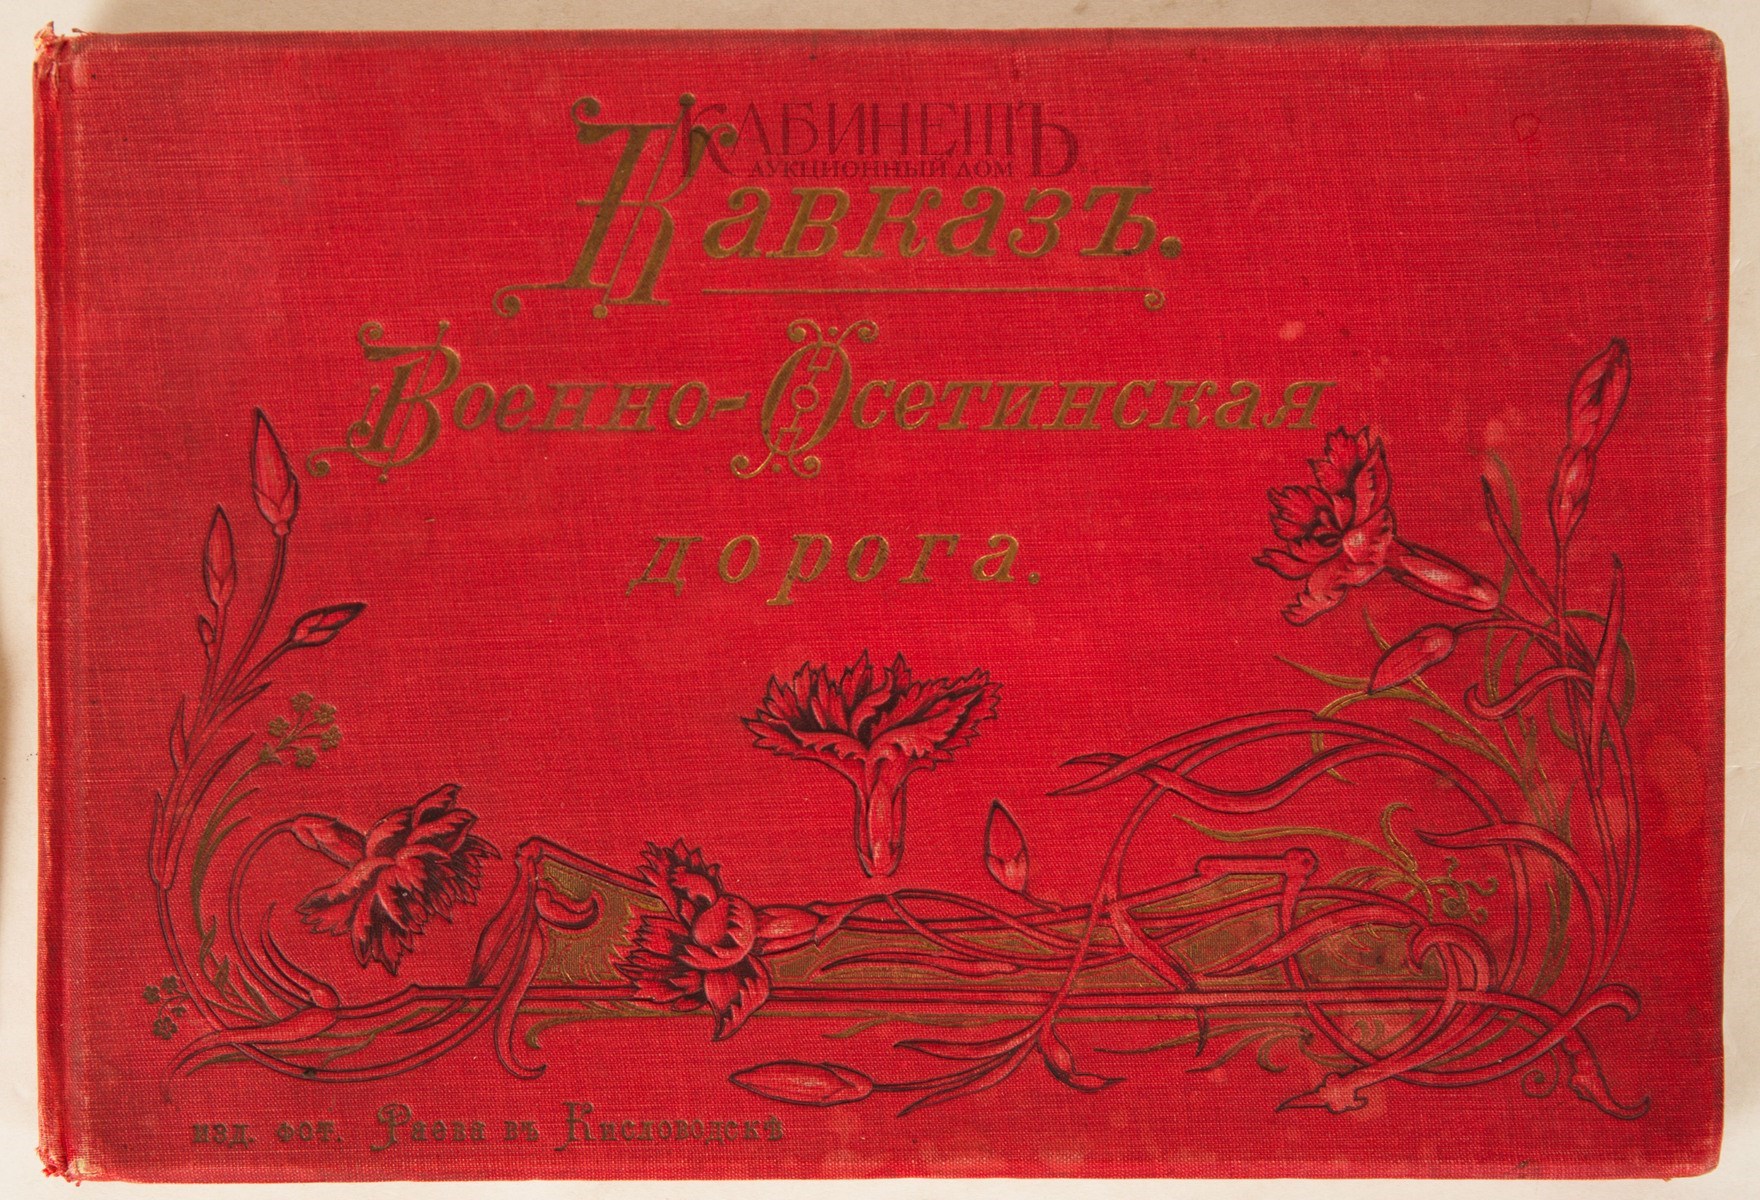 КАБИНЕТЪ
АУКЦИОННЫЙ ДОМ
Кавказъ.
Военно-Осетинская
дорога.
изд. фот. Раева въ Кисловодскѣ